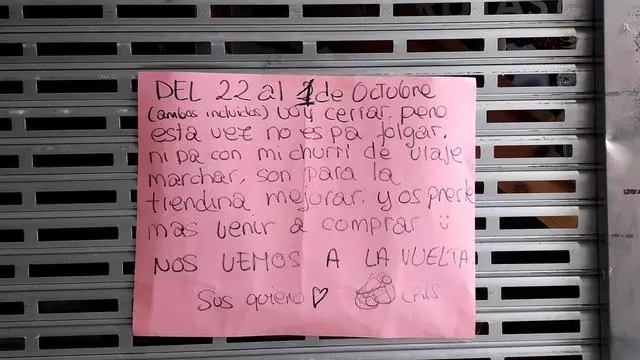 DEL 22 al 1 de Octubre
(ambos incluidos) voy cerrar, pero
esta vez no es pa folgar,
ni pa con mi churri de viaje
marchar, son para la
tiendina mejorar. y os preste
mas venir a comprar
NOS VEMOS A LA VUELTA
Sus quiero CRIS